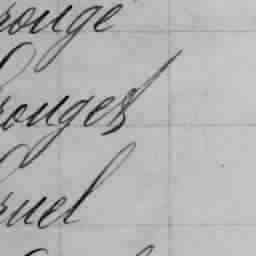 rouge
rouges
ruel